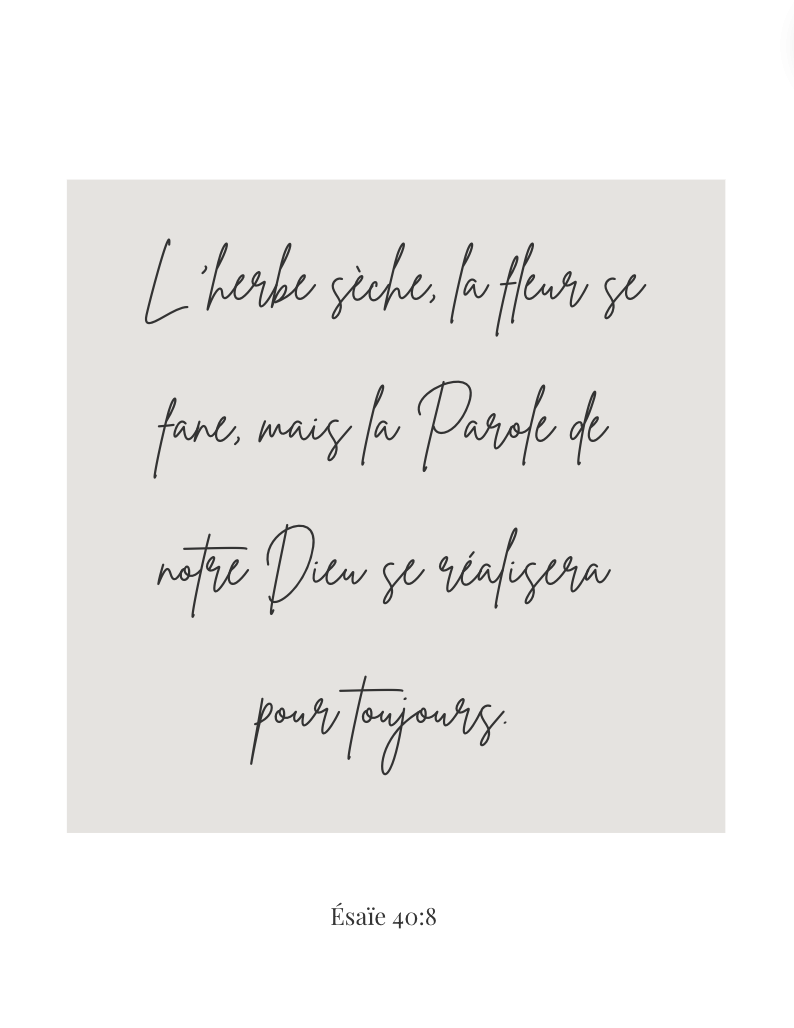 L'herbe sèche, la fleur se
fane, mais la Parole de
notre Dieu se réalisera
pour toujours.
Ésaïe 40:8